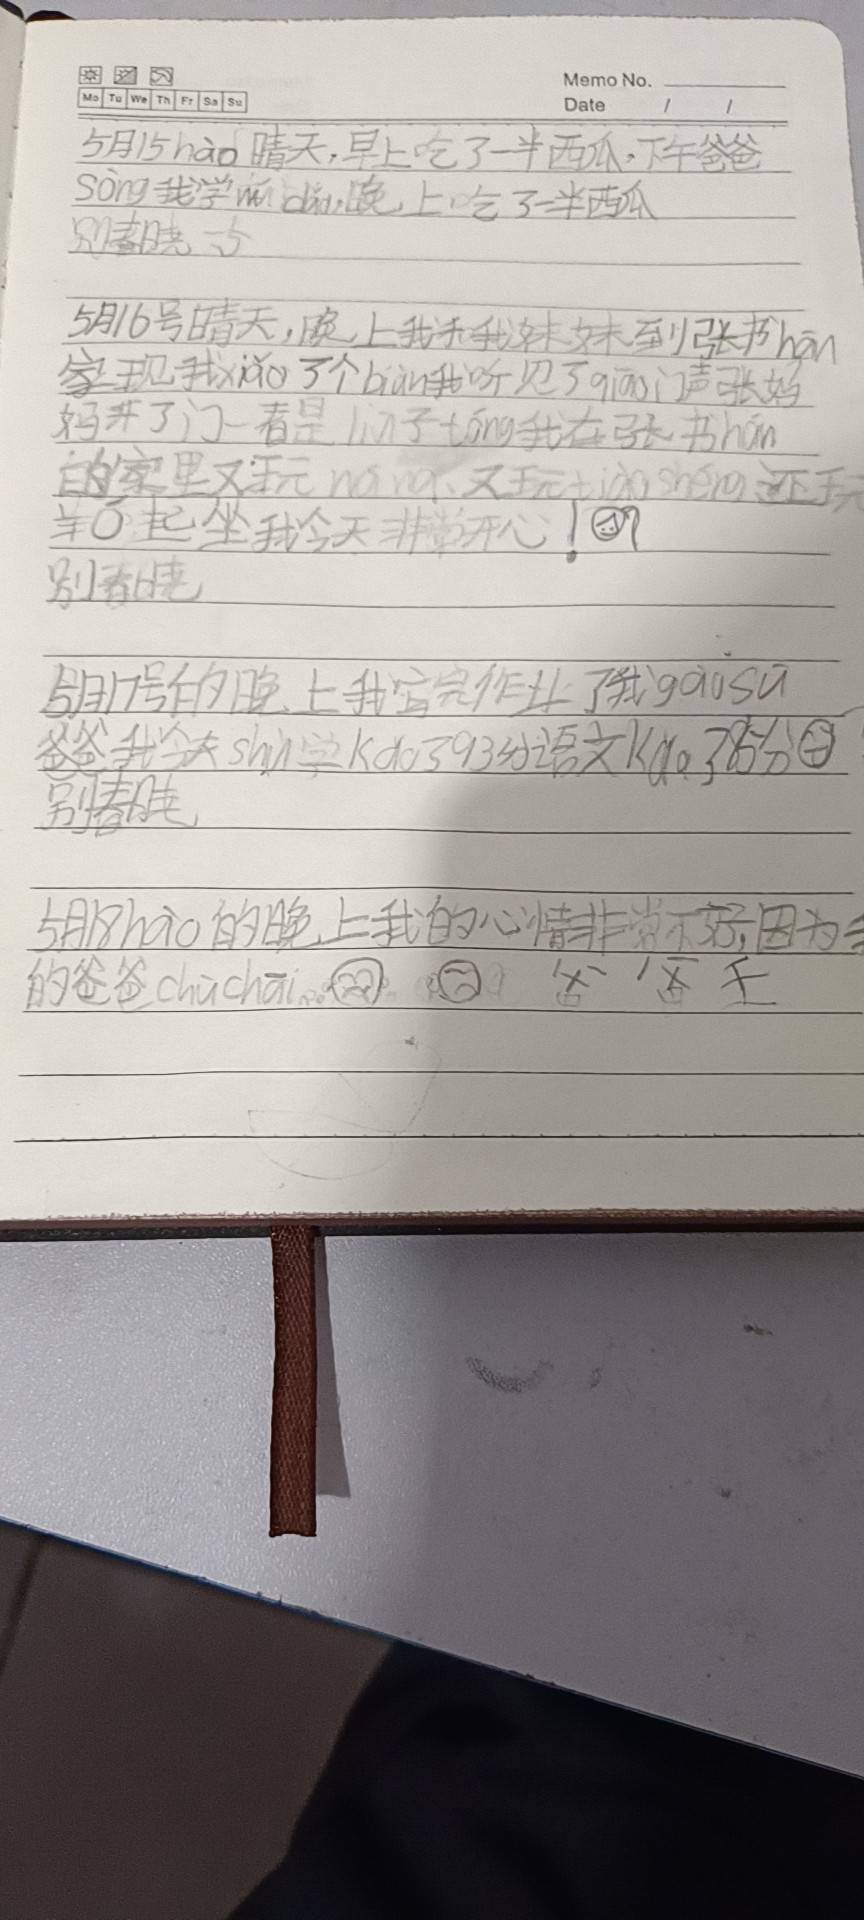 Mo Tu We Th Fr Sa Su
Memo No.
Date / /
5月15hào晴天,早上吃了一半西瓜,下午爸爸
sòng我学 晚上吃了一半西瓜
别春晓
5月16号晴天,晚上我和我妹妹到张书hān
家玩我xiǎo了个biàn我听见了qiāo门声张妈
妈开了门一看是lín子tóng我在张书hān
的家里又玩 又玩tiào shéng还玩
羊O起坐我今天非常开心!
别春晓
5月17号的晚上我写完作业了我gàosù
爸爸我今天shù学kǎo了93分语文kǎo了85分
别春晓
5月18hào的晚上我的心情非常不好,因为
的爸爸chūchāi